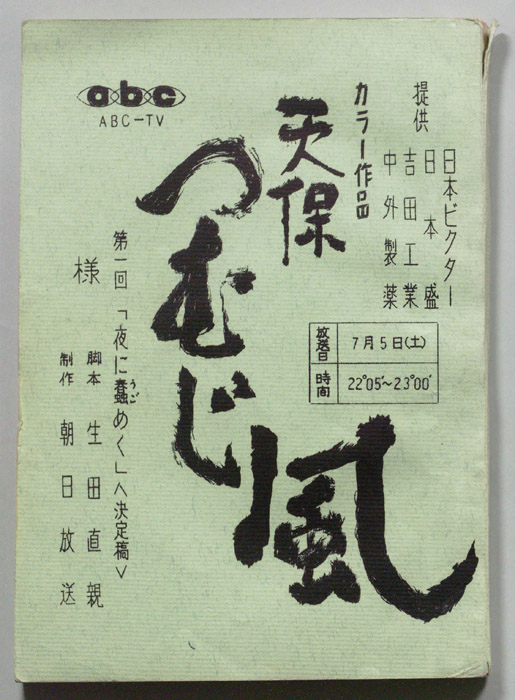 abc
ABC-TV
提供
日本ビクター
日本盛
吉田工業
中外製薬
カラー作品
天保
つむじ風
放送日 7月5日(土)
時間 22°05'~23°00'
第一回「夜に蠢めく」<決定稿>
うご
様
脚本 生田直親
制作 朝日放送